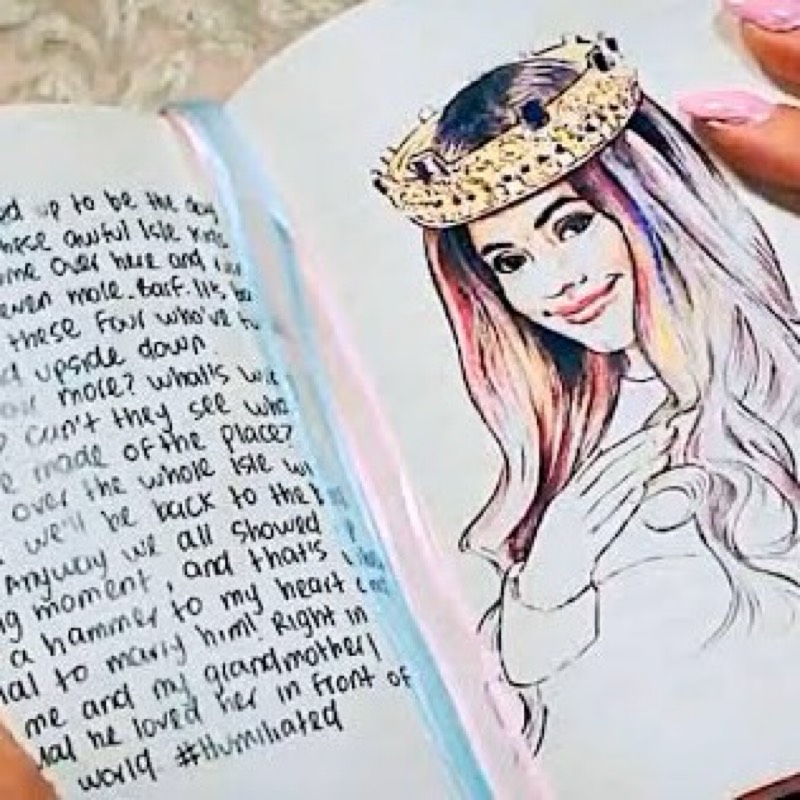 up to be the day
awful Isle
me over here and
even more. Barf. It's
these four who've
upside down.
more? What's
can't they see
made of the place?
over the whole Isle
we'll be back to the
Anyway we all showed
moment, and that's
a hammer to my heart
to marry him! Right in
me and my grandmother!
he loved her in front of
world #Humiliated